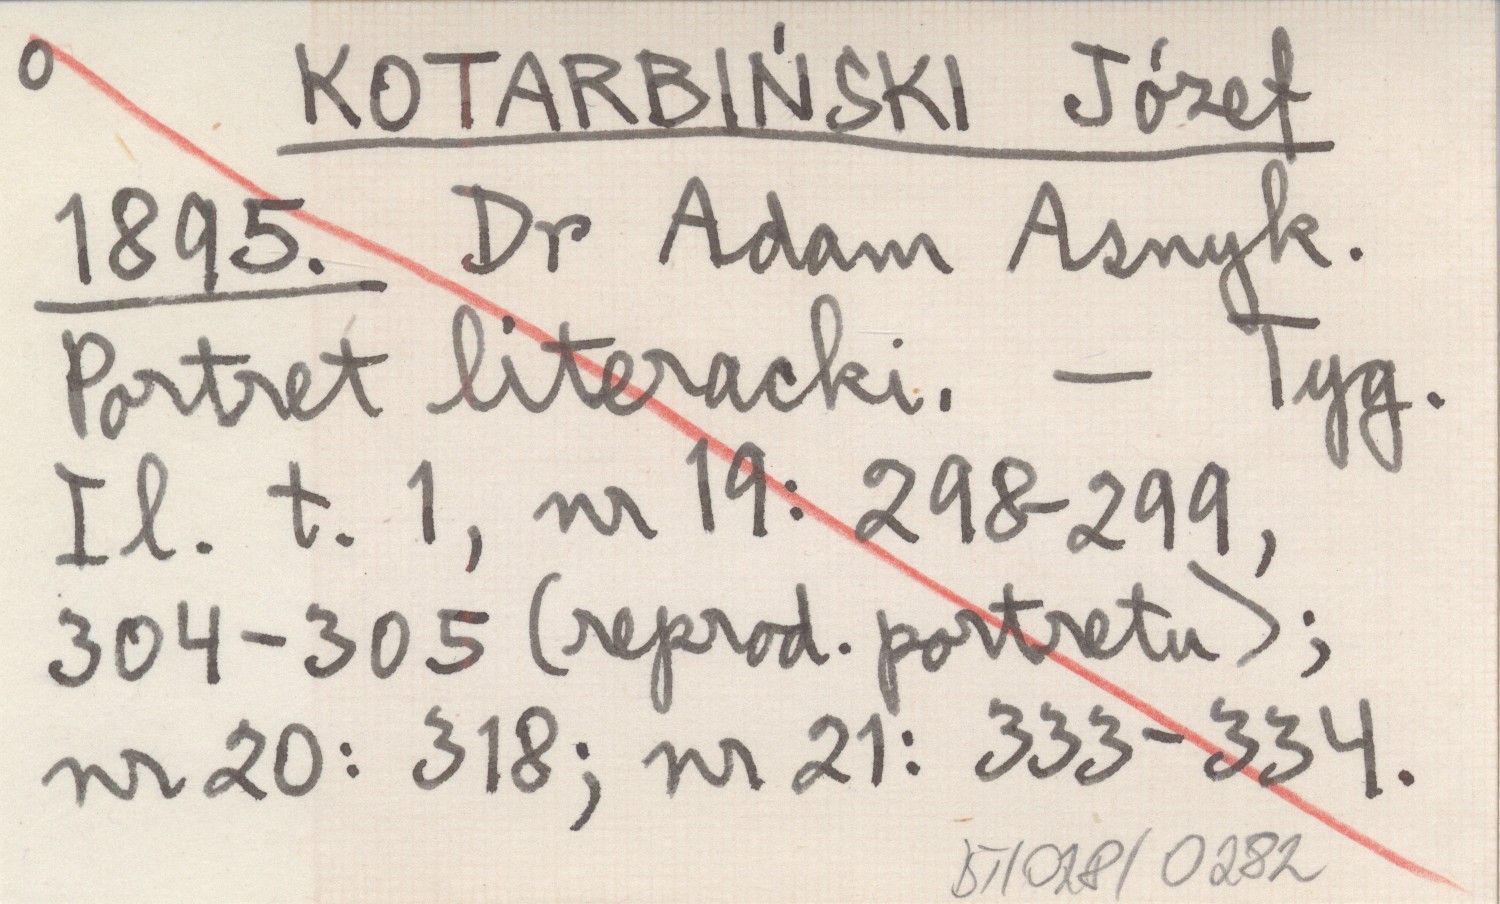 o KOTARBIŃSKI Józef
1895. Dr Adam Asnyk.
Portret literacki. — Tyg.
Il. t. 1, nr 19: 298-299,
304-305 (reprod. portretu);
nr 20: 318; nr 21: 333-334.
0282